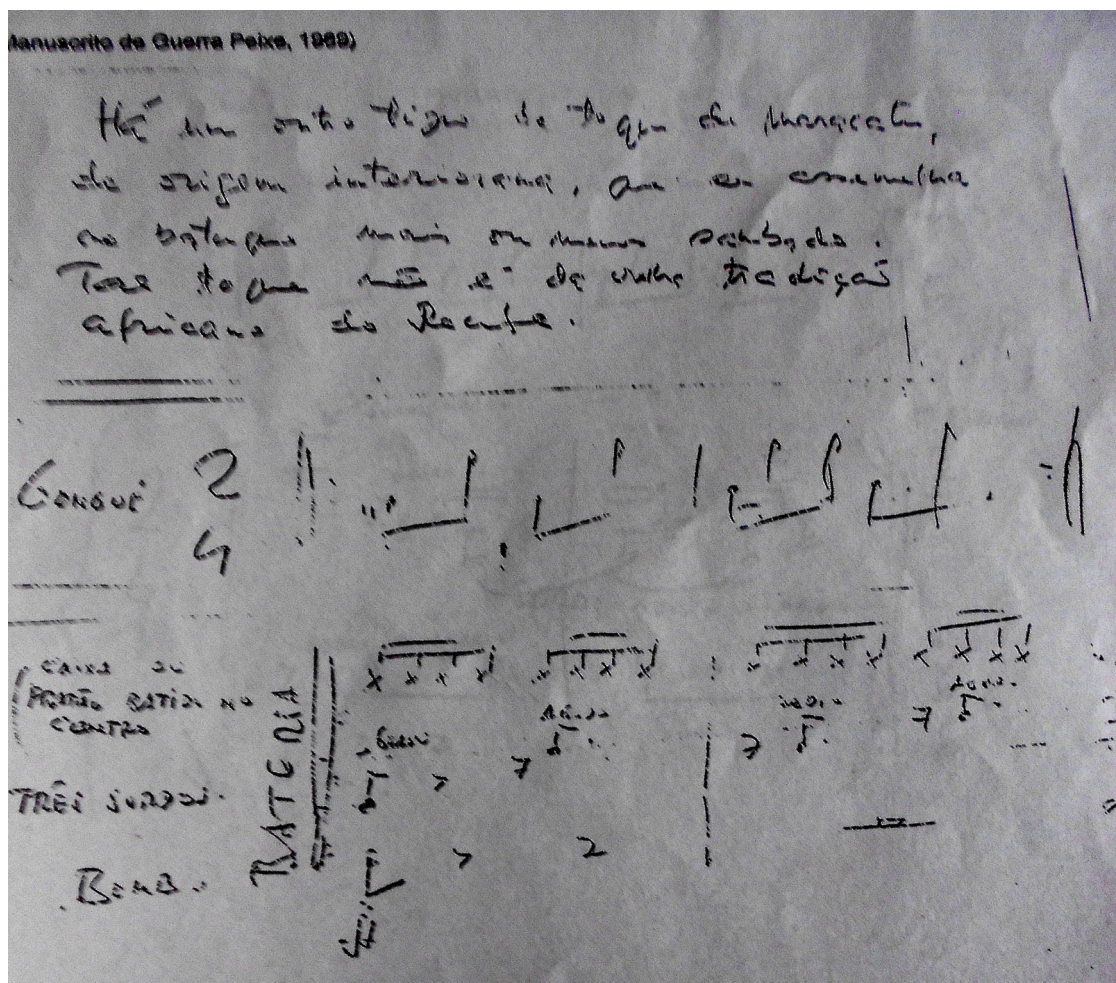 Manuscrito de Guerra Peixe, 1989)
Há um outro tipo de toque de maracatu,
de origem interiorana, que se assemelha
ao batuque mais ou menos sambado.
Esse toque não é da velha tradição
africana do Recife.
GONGUÊ 2
4
CAIXA OU
PRATO BATIDO NO
CENTRO
BATERIA
TRÊS SURDOS.
BOMBO